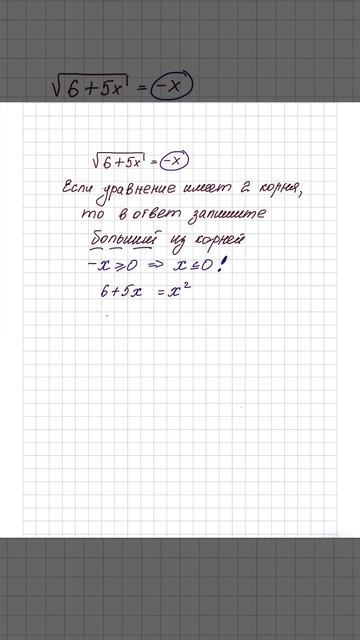 √6+5x = -x
√6+5x = -x
Если уравнение имеет 2 корня,
то в ответ запишите
больший из корней
-x ⩾ 0 ⇒ x ≤ 0 !
6+5x = x²